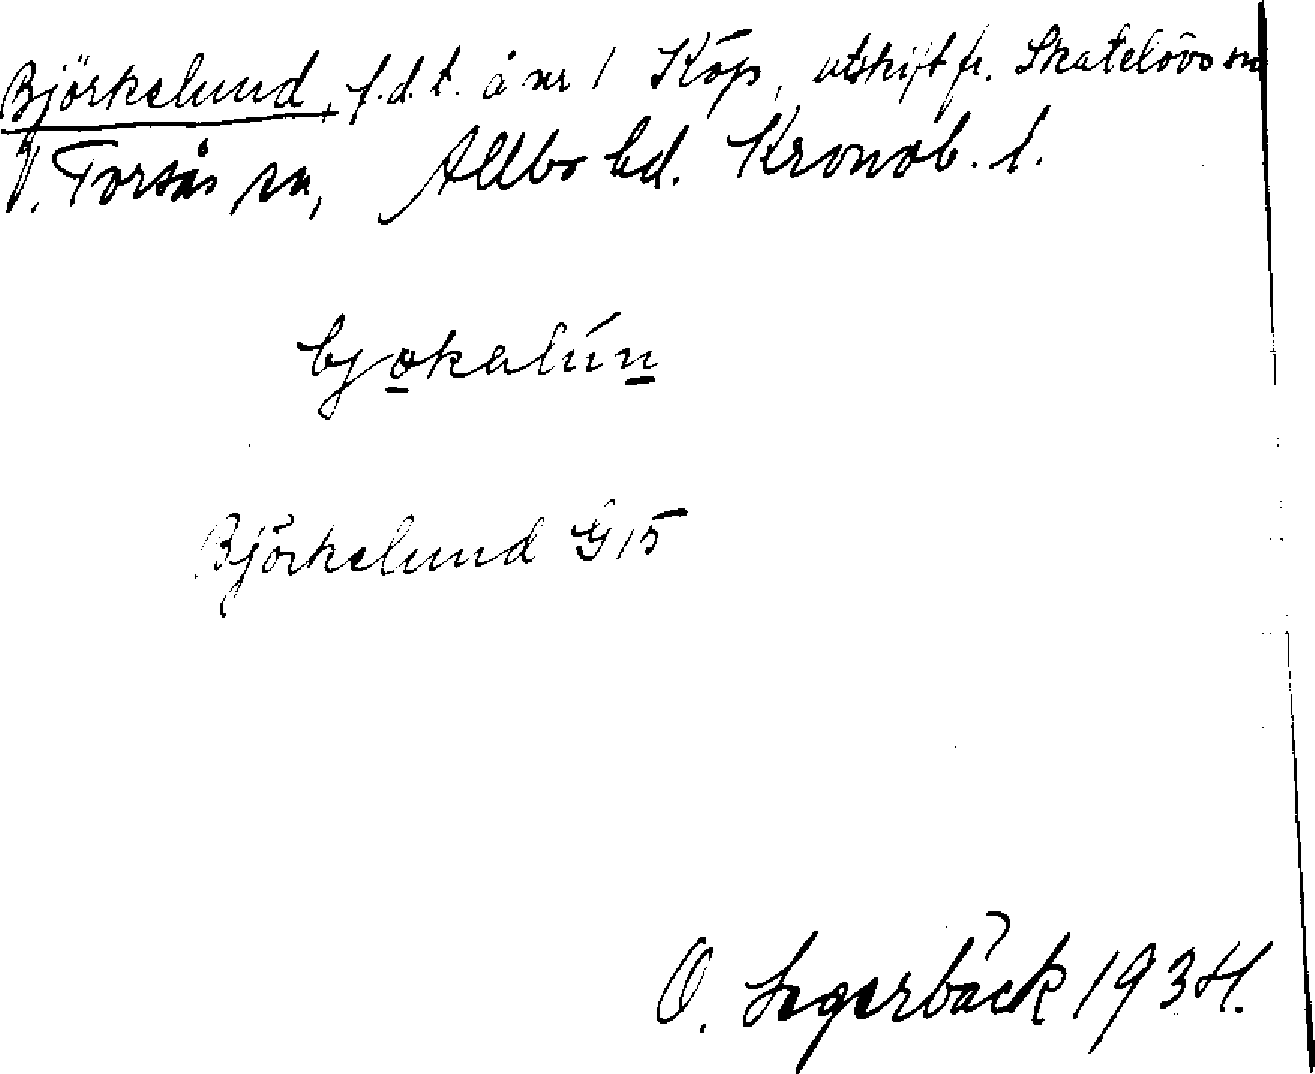 Björkelund, f.d.t. å nr 1 Köp, utskift fr. Skatelövs sn
V. Torsås sn, Allbo hd. Kronob. l.
bjokalún
Björkelund G 15
O. Segerbäck 1934.